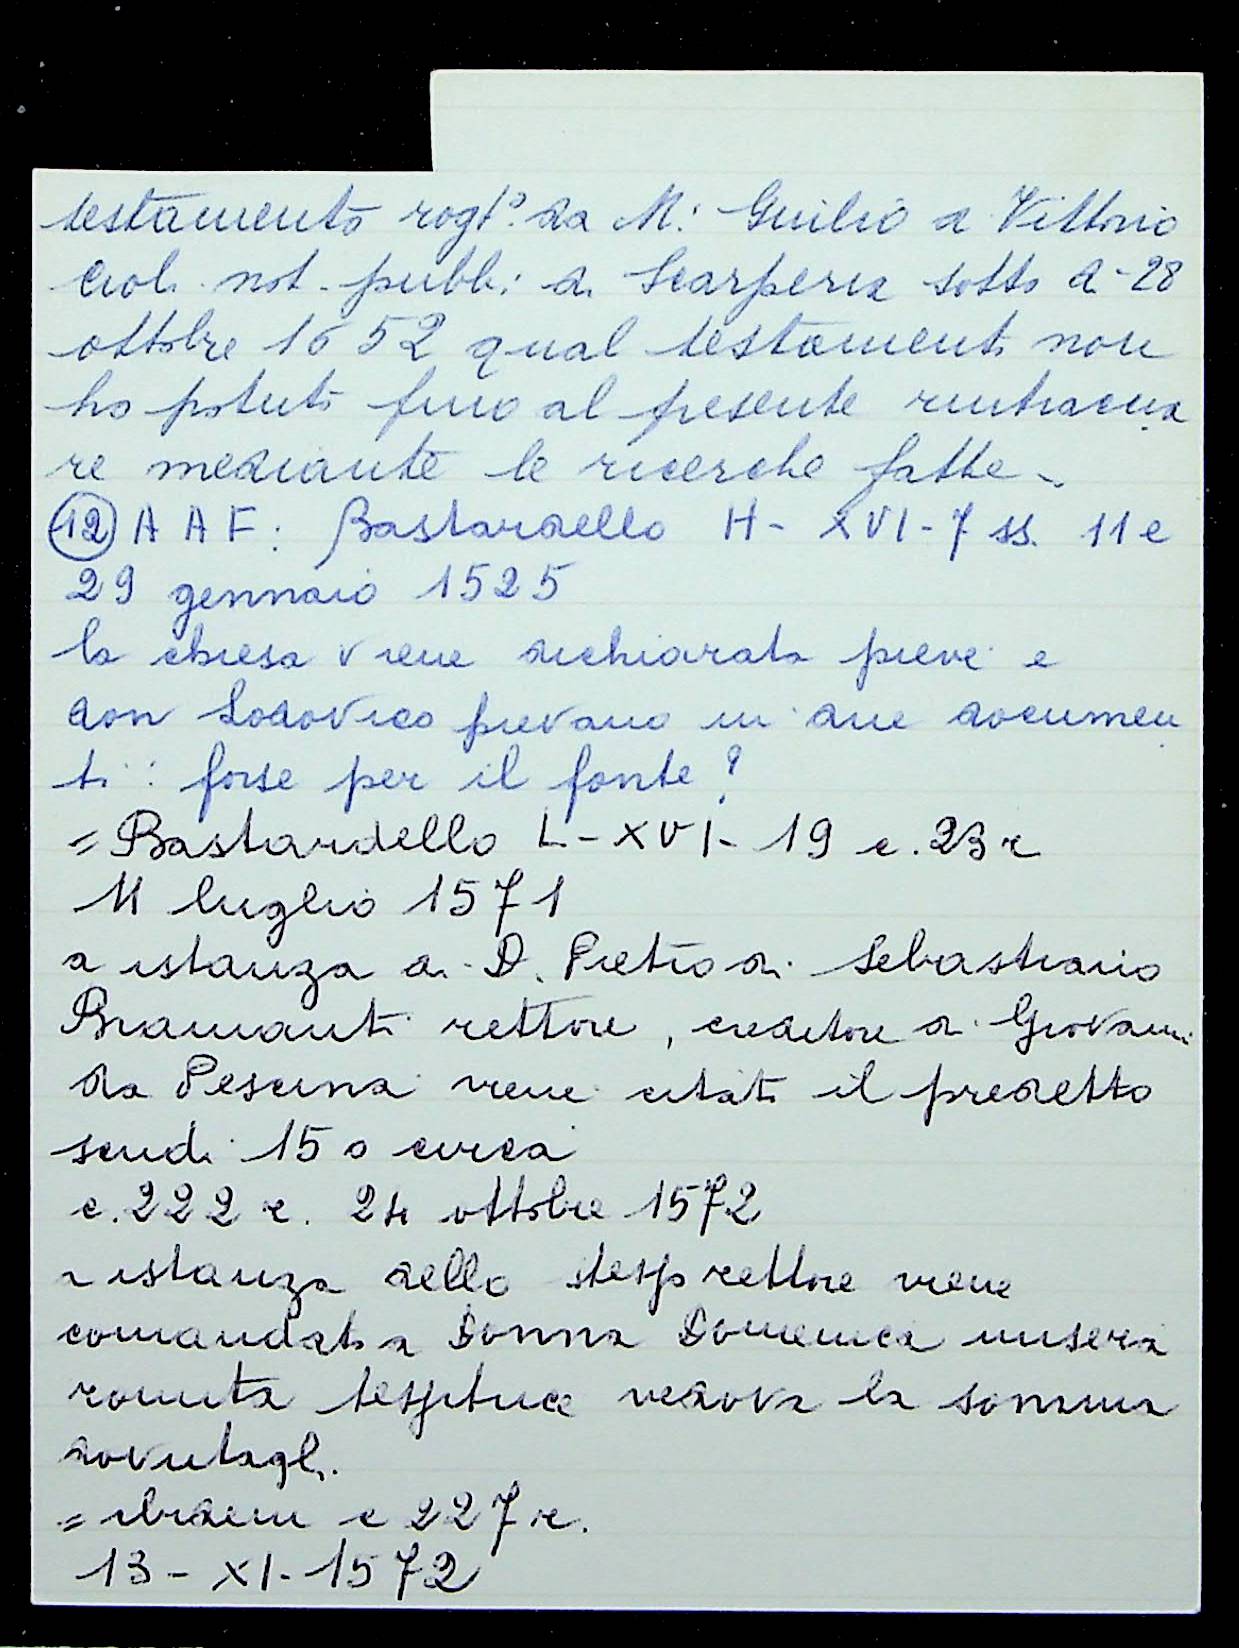 testamento rogt° da M: Giulio di Vittorio
Cioli not. pubb: di Scarperia sotto dì 28
ottobre 1652 qual testamento non
ho potuto fino al presente rintraccia
re mediante le ricerche fatte -
(12) A A F: Bastardello H - XVI - 7 ss. 11 e
29 gennaio 1525
la chiesa viene dichiarata pieve e
don Lodovico pievano in due documen
ti: forse per il fonte?
= Bastardello L - XVI - 19 c. 23 r
11 luglio 1571
a istanza di D. Pietro di Sebastiano
Bramanti rettore, creditore di Giovanni
da Pescina viene citato il predetto
scudi 150 circa
c. 222 r. 24 ottobre 1572
a istanza dello stesso rettore viene
comandato a Donna Domenica
vedova la somma
dovutagli.
= ibidem c 227 r.
13 - XI - 1572